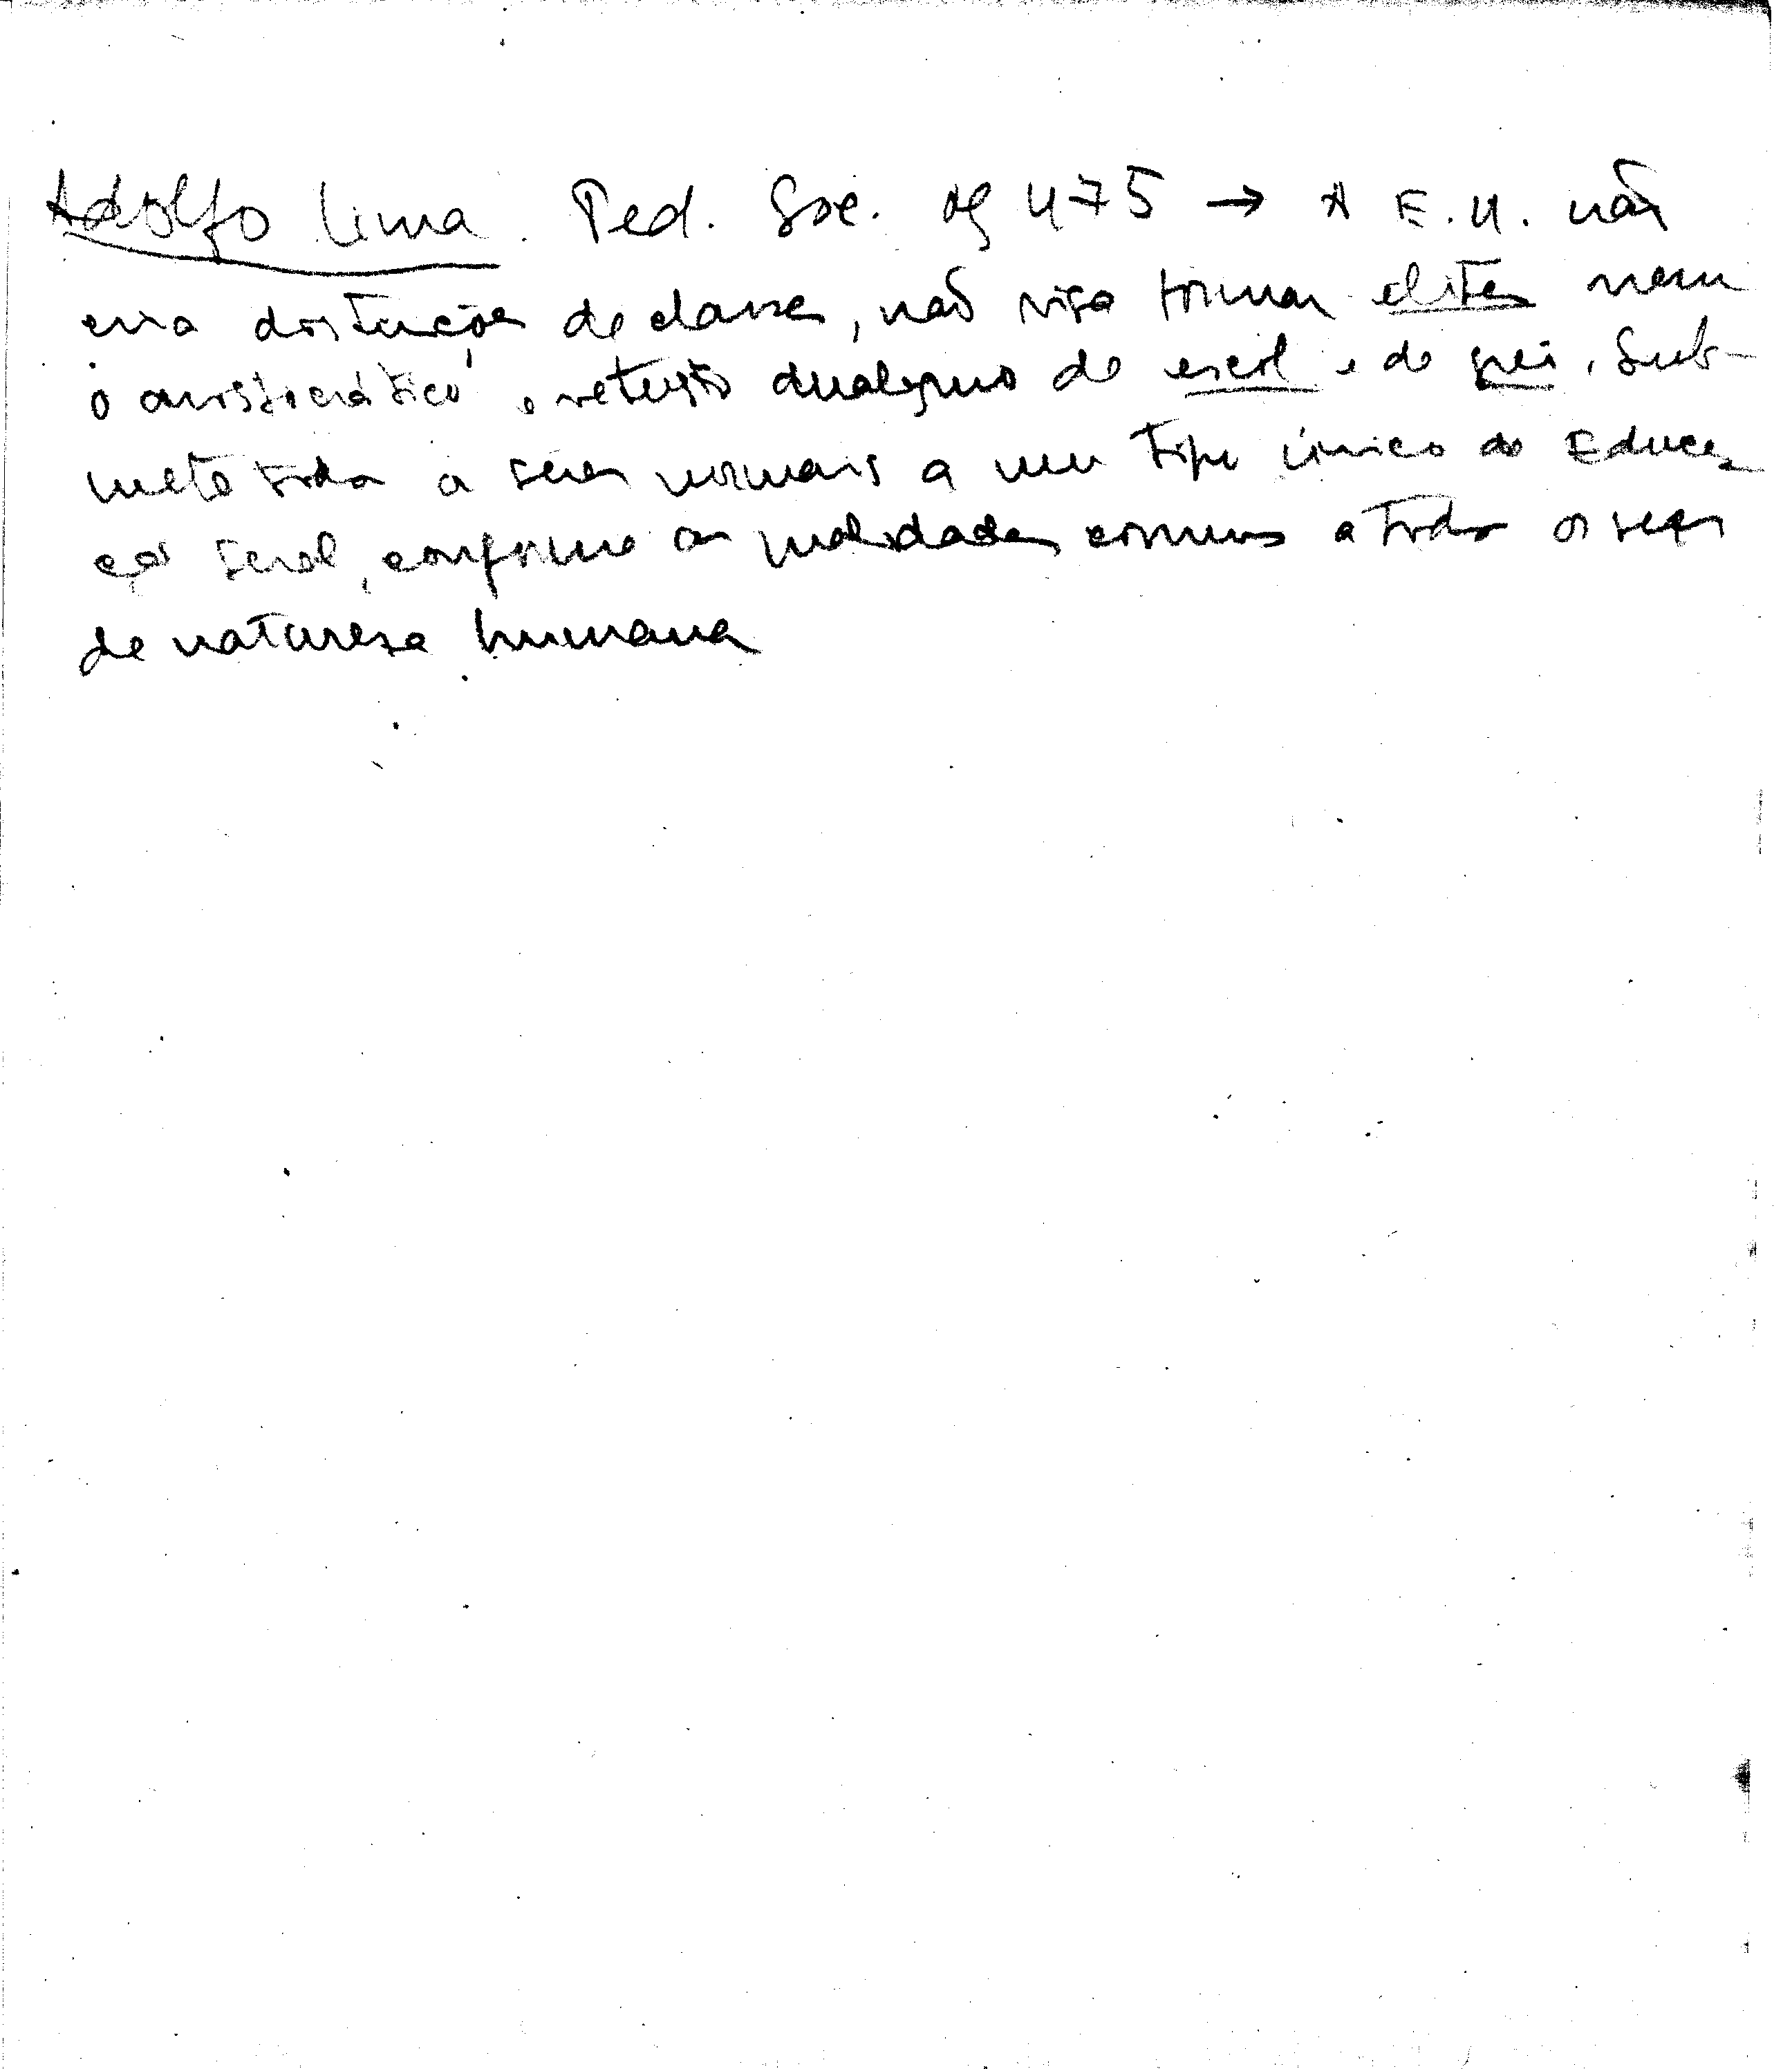 Adolfo Lima. Ped. Soc. pg 475 → A E.U. não
cria distinções de classes, não visa formar elites nem
o aristocrático e vetusto dualismo de escol e de grei. Sub-
mete todos os seres normais a um tipo único de Educa-
ção geral, conforme as qualidades comuns a todos os seres
de natureza humana